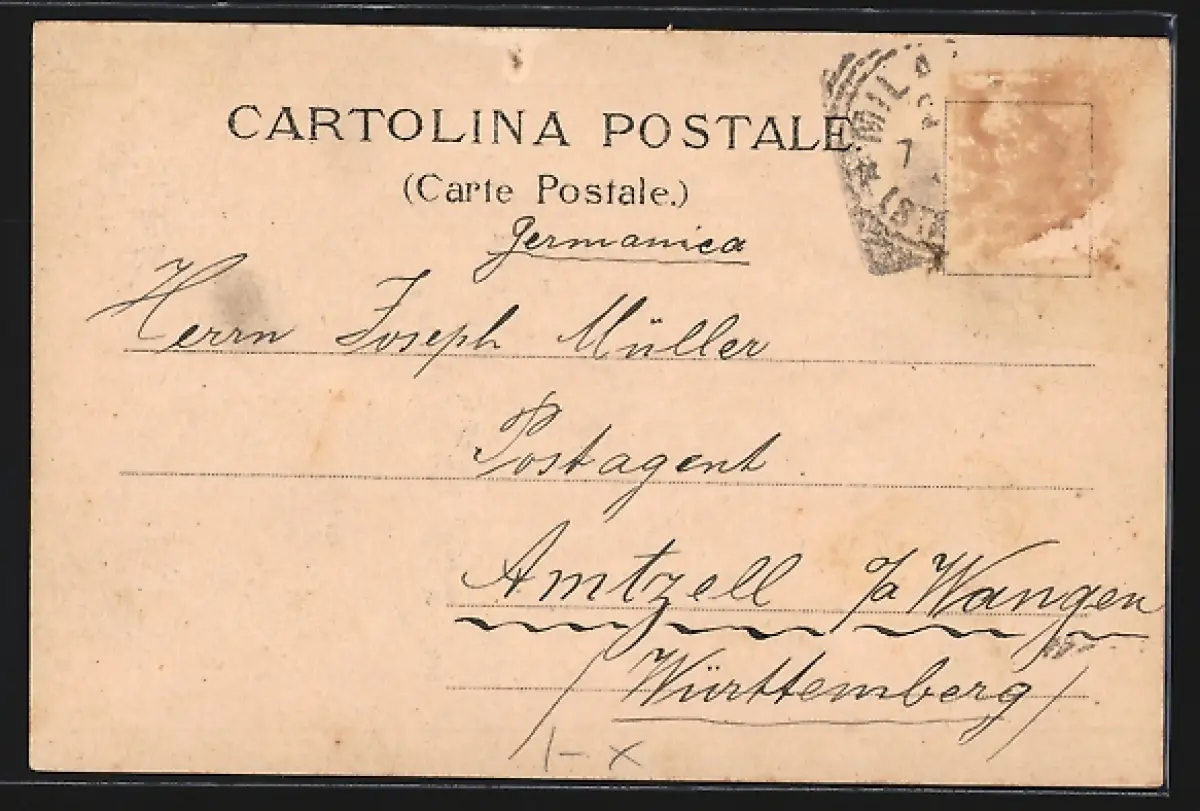 CARTOLINA POSTALE.
(Carte Postale.)
MILA
7
(STA
Germanica
Herrn Joseph Müller
Postagent
Amtzell p/a Wangen
(Württemberg)
1 - x